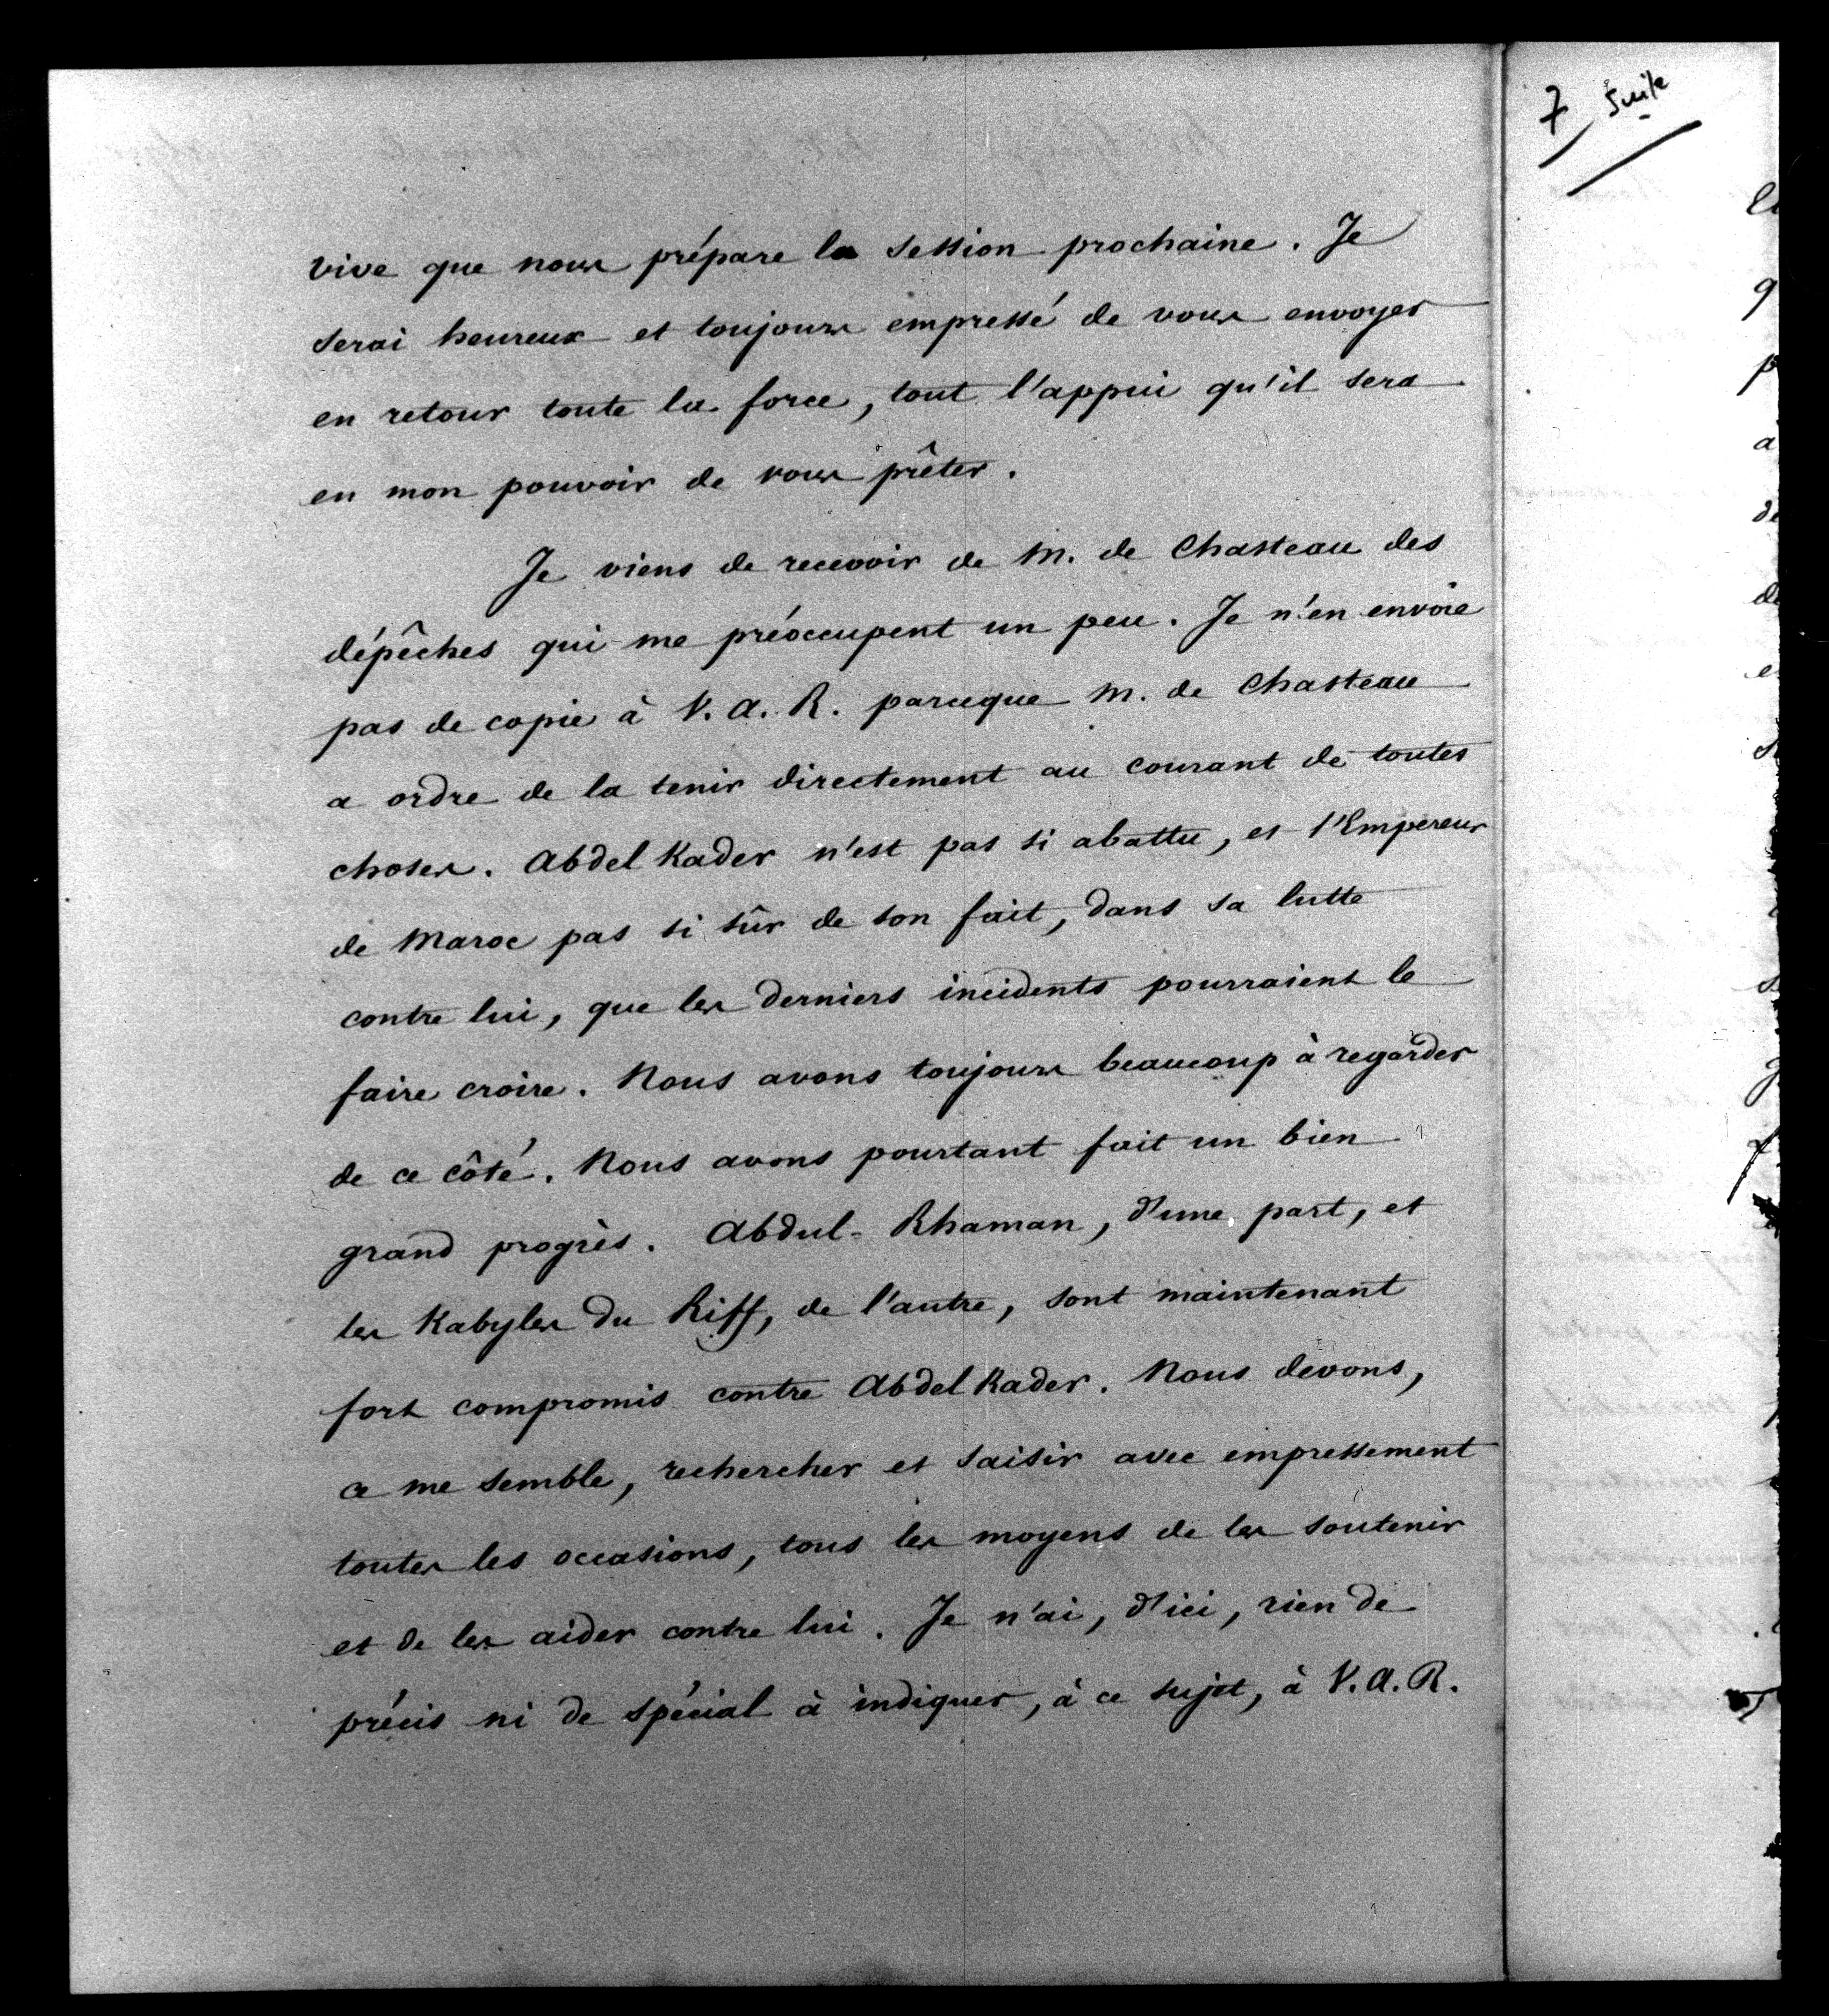 vive que nous prépare la session prochaine. Je
serai heureux et toujours empressé de vous envoyer
en retour toute la force, tout l'appui qu'il sera
en mon pouvoir de vous prêter.
Je viens de recevoir de M. de Chasteau des
dépêches qui me préoccupent un peu. Je n'en envoie
pas de copie à V. A. R. parceque M. de Chasteau
a ordre de la tenir directement au courant de toutes
choses. Abdel Kader n'est pas si abattu, et l'Empereur
de Maroc pas si sûr de son fait, dans sa lutte
contre lui, que les derniers incidents pourraient le
faire croire. Nous avons toujours beaucoup à regarder
de ce côté. Nous avons pourtant fait un bien
grand progrès. Abdul-Rhaman, d'une part, et
les Kabyles du Riff, de l'autre, sont maintenant
fort compromis contre Abdel Kader. Nous devons,
ce me semble, rechercher et saisir avec empressement
toutes les occasions, tous les moyens de les soutenir
et de les aider contre lui. Je n'ai, d'ici, rien de
précis ni de spécial à indiquer, à ce sujet, à V. A. R.
7 Suite